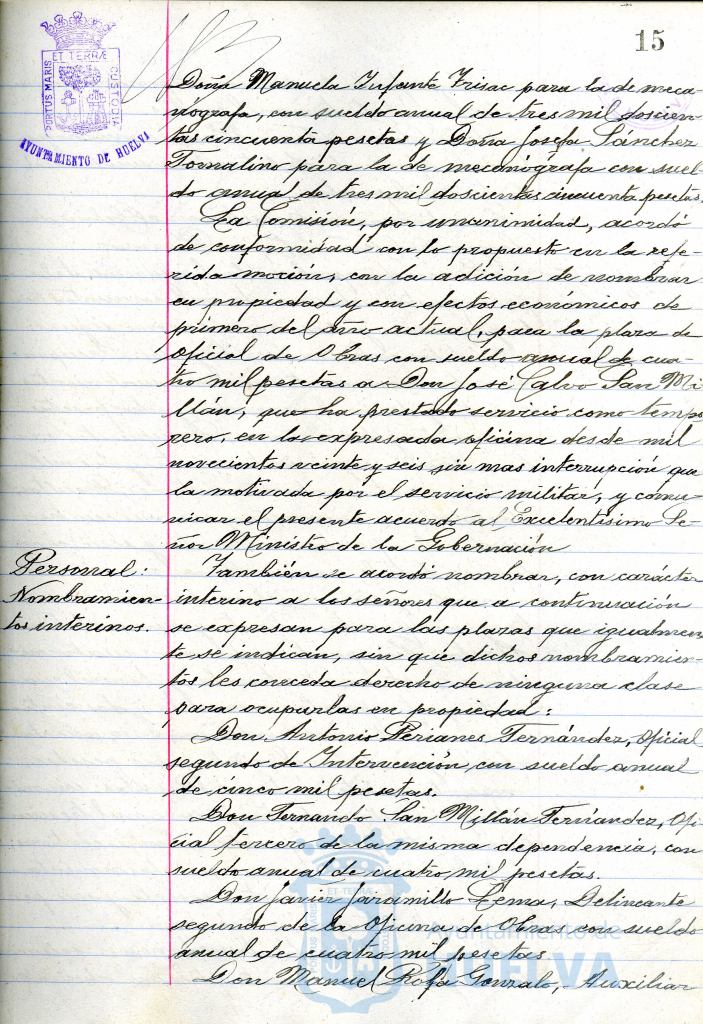 15
PORTUS MARIS ET TERRÆ CUSTODIA
AYUNTAMIENTO DE HUELVA
Doña Manuela Infante Frisac para la de meca-
nógrafa, con sueldo anual de tres mil doscien-
tas cincuenta pesetas y Doña Josefa Sánchez
Tornalino para la de mecanógrafa con suel-
do anual de tres mil doscientas cincuenta pesetas.
La Comisión, por unanimidad, acordó
de conformidad con lo propuesto en la refe-
rida moción, con la adición de nombrar
en propiedad y con efectos económicos de
primero del año actual, para la plaza de
Oficial de Obras con sueldo anual de cua-
tro mil pesetas a Don José Calvo San Mi-
llán, que ha prestado servicio como tempo
rero, en la expresada oficina desde mil
novecientos veinte y seis sin mas interrupción que
la motivada por el servicio militar, y comu-
nicar el presente acuerdo al Excelentísimo Se-
ñor Ministro de la Gobernación
Personal:
Nombramien-
tos interinos.
También se acordó nombrar, con carácter
interino a los señores que a continuación
se expresan para las plazas que igualmen-
te se indican, sin que dichos nombramien-
tos les conceda derecho de ninguna clase
para ocuparlas en propiedad:
Don Antonio Perianes Fernández, Oficial
segundo de Intervención con sueldo anual
de cinco mil pesetas.
Don Fernando San Millán Fernández, Ofi-
cial tercero de la misma dependencia, con
sueldo anual de cuatro mil pesetas.
Don Javier Jaramillo Lema, Delineante
segundo de la Oficina de Obras con sueldo
anual de cuatro mil pesetas.
Don Manuel Rofa Gonzalo, Auxiliar
Ayuntamiento de
HUELVA